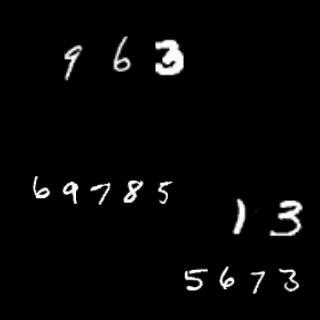 963
69785
13
5673